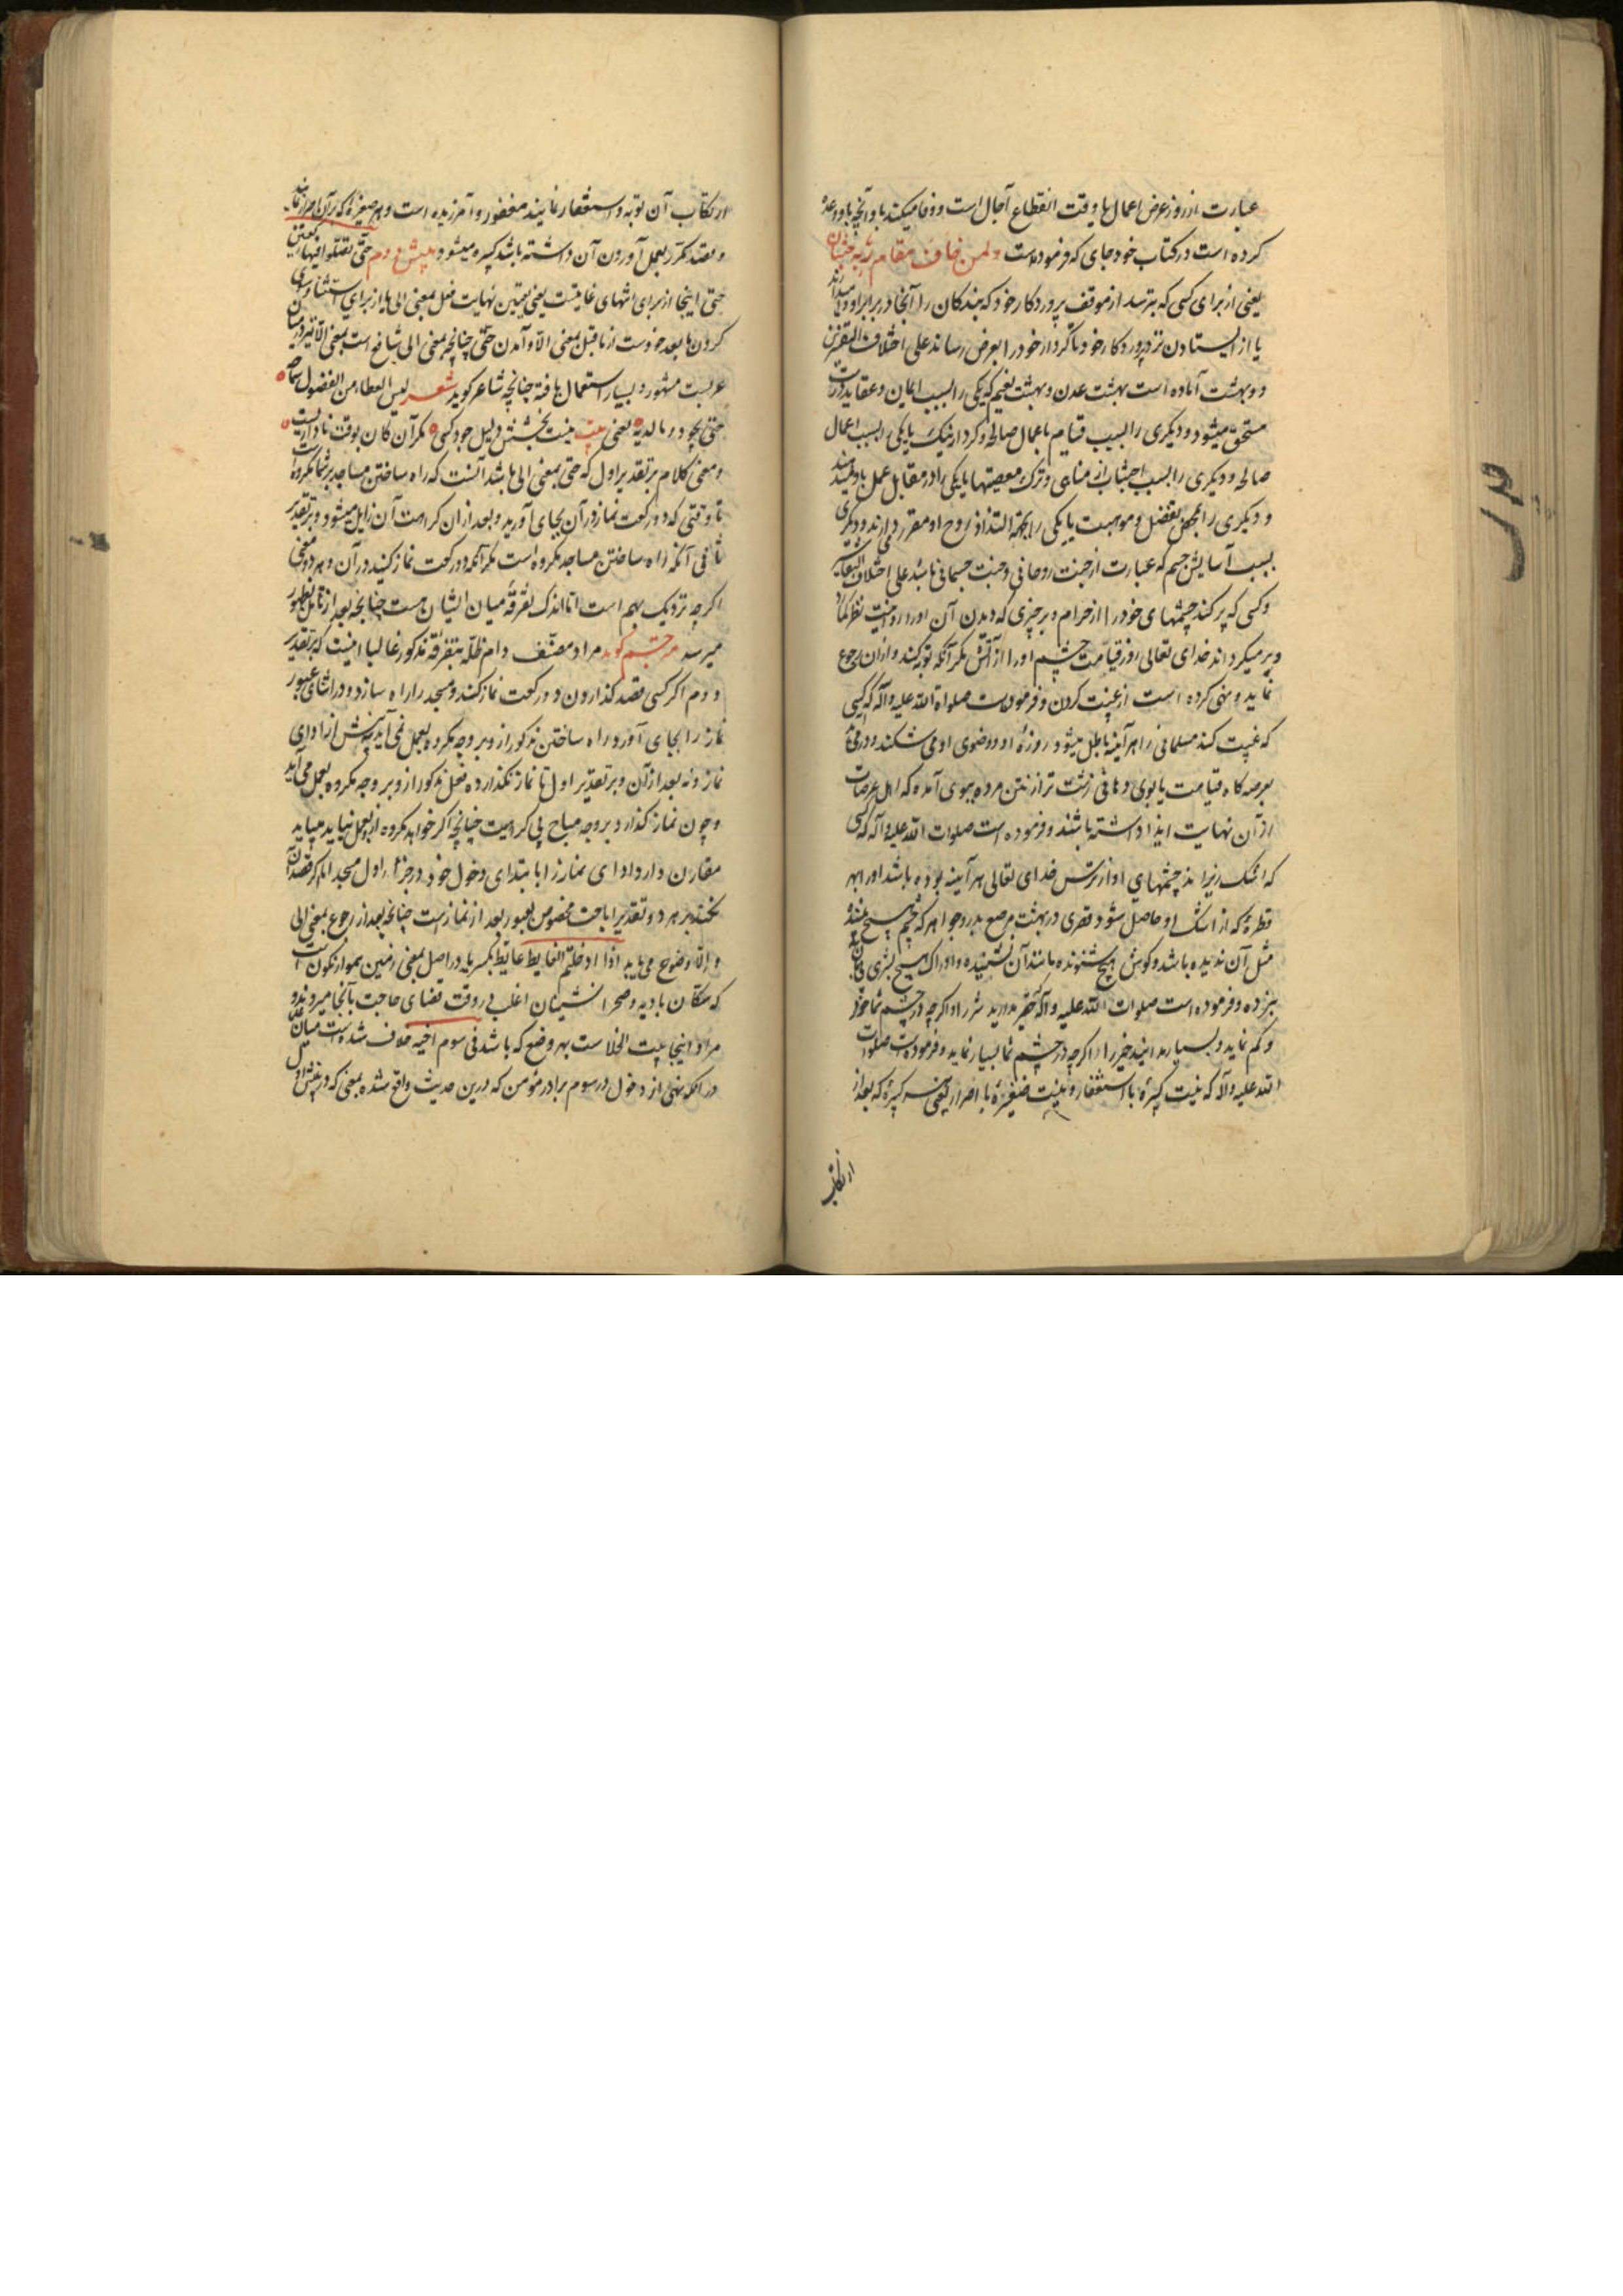 عبارت از روز عرض اعمال یا وقت انقطاع آجال است و وفا میکند با و آنچه با و وعده
کرده است در کتاب خود جای که فرموده است ولمن خاف مقام ربه جنتان
یعنی از برای کسی که بترسد از موقف پروردکار خود که بندکان را آنجا در برابر او
یا از ایستادن نزد پروردکار خود تا کردار خود را بعرض رساند علی اختلاف التفسیرین
دو بهشت آماده است بهشت عدن و بهشت نعیم که یکی را بسبب ایمان و عقاید درست
مستحق میشود و دیکری را بسبب قیام باعمال صالحه و کردار نیک یا یکی را بسبب اعمال
صالحه و دیکری را بسبب اجتناب از مناهی و ترک معصیتها یا یکی را در مقابل عمل باو میدهند
و دیکری را بمحض تفضل و موهبت یا یکی را بجهة التذاذ روح او مقرر دارند و دیکری
بسبب آسایش جسم که عبارت از جنت روحانی و جنت جسمانی باشد علی اختلاف التفاسیر
و کسی که پر کند چشمهای خود را از حرام و بر چیزی که دیدن آن او را روا نیست نظر
پر میکرداند خدای تعالی روز قیامت چشم او را از آتش مکر آنکه توبه کند و از آن رجوع
نماید و نهی کرده است از غیبت کردن و فرموده است صلواة الله علیه و آله که کسی
که غیبت کند مسلمانی را هر آینه باطل میشود روزهٔ او و وضوی او می شکند و در می آید
بعرصه کاه قیامت با بوی دهانی زشت تر از نتن مرده ببوی آمده که اهل عرصات
از آن نهایت ایذا داشته باشند و فرموده است صلوات الله علیه و آله که کسی
که اشک ریزاند چشمهای او از ترس خدای تعالی هر آینه بوده باشد او را بهر
قطرهٔ که از اشک او حاصل شود قصری در بهشت مرصع بدر و جواهر که چشم هیچ بینندهٔ
مثل آن ندیده باشد و کوش هیچ شنونده مانند آن نشنیده و ادراک هیچ بشری
نبرده و فرموده است صلوات الله علیه و آله حقیر مدارید شر را و اکرچه در چشم شما خورد
و کم نماید و بسیار مدانید خیر را اکرچه در چشم شما بسیار نماید و فرموده است صلوات
الله علیه و آله که نیست کبیرهٔ با استغفار و نیست صغیرهٔ با اصرار یعنی هر کبیرهٔ که بعد از
ارتکاب
ارتکاب آن توبه و استغفار نمایند مغفور و آمرزیده است و هر صغیرهٔ که بر آن اصرار نمایند
و قصد مکرر بعمل آوردن آن داشته باشد کبیره میشود پیش دوم حتی تصلوا فیها رکعتین
حتی اینجا از برای انتهای غایتست یعنی تعیین نهایت فعل بمعنی الی یا از برای استثنا
کردن ما بعد خودست از ما قبل بمعنی الا و آمدن حتی چنانچه بمعنی الی شایع است بمعنی الا نیز در میان
عربیت مشهور و بسیار استعمال یافته چنانچه شاعر کوید شعر لیس العطاء من الفضول سماحة
حتی تجود و ما لدیه یعنی نیست بخشش دلیل جود کسی مکر آن کان بوقت ناداریست
و معنی کلام بر تقدیر اول که حتی بمعنی الی باشد آنست که راه ساختن مساجد بر شما مکروه است
تا وقتی که دو رکعت نماز در آن بجای آورید و بعد از آن کراهت آن زایل میشود و بر تقدیر
ثانی آنکه راه ساختن مساجد مکروه است مکر آنکه دو رکعت نماز کنید در آن و هر دو معنی
اکرچه نزدیک بهم است اما اندک تفرقهٔ میان ایشان هست چنانچه بعد از تامل بظهور
میرسد مترجم کوید مراد مصنف دام ظله بتفرقهٔ مذکور غالبا اینست که بر تقدیر
دوم اکر کسی قصد کذاردن دو رکعت نماز کند و مسجد را راه سازد و در اثنای عبور
نماز را بجای آورد راه ساختن مذکور از و بر وجه مکروه بعمل نمی آید پیش از ادای
نماز و نه بعد از آن و بر تقدیر اول تا نماز نکذارده فعل مذکور از و بر وجه مکروه بعمل می آید
و چون نماز کذارد بر وجه مباح بی کراهیت چنانچه اکر خواهد مکروه از و بعمل نیاید میباید
مقارن دارد ادای نماز را با ابتدای دخول خود در جزء اول مسجد اما کر قصد آن
نکند بر هر دو تقدیر اباحت مخصوص بعبور بعد از نماز است چنانچه بعد از رجوع بمعنی الی
و الا وضوح می یابد اذا دخلتم الغایط غایط بکسر یا در اصل بمعنی زمین هموار نکون است
که سکان بادیه و صحرا نشینان اغلب در وقت قضای حاجت بآنجا میروند و
مراد اینجا بیت الخلاست بهر وضع که باشد فی سوم اخیه خلاف شده است میان علما
در آنکه نهی از دخول در سوم برادر مؤمن که درین حدیث واقع شده بمعنی که در پیش